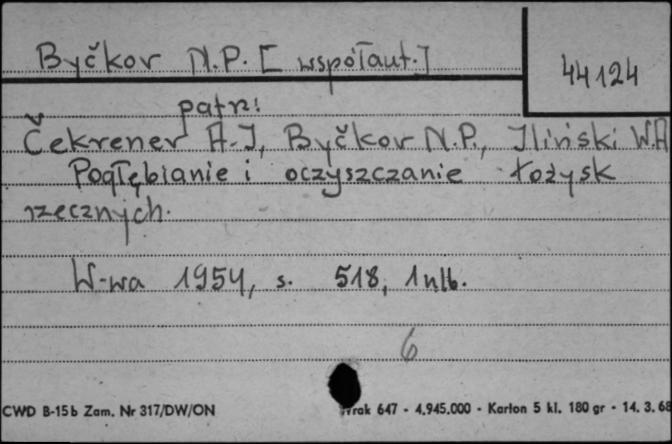 Byčkov N.P. [ współaut.]
44124
patrz:
Čekrener A.I, Byčkov N.P., Iliński W.A
Pogłębianie i oczyszczanie łożysk
rzecznych.
W-wa 1954, s. 518, 1 nlb.
6
CWD B-15b Zam. Nr 317/DW/ON
rak 647 - 4.945.000 - Karton 5 kl. 180 gr - 14. 3. 68